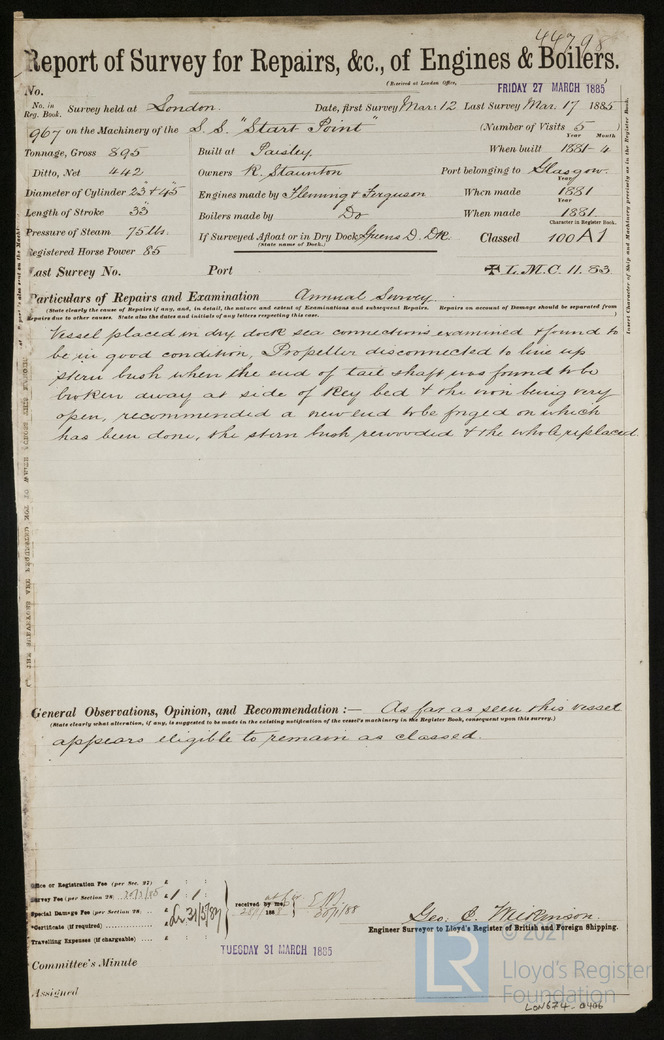 44798
Report of Survey for Repairs, &c., of Engines & Boilers.
(Received at London Office, FRIDAY 27 MARCH 1885
No.
No. in Reg. Book. Survey held at London. Date, first Survey Mar: 12 Last Survey Mar. 17 1885
967 on the Machinery of the S.S. "Start Point" (Number of Visits 5
Tonnage, Gross 895 Built at Paisley. When built 1881-4 Year Month
Ditto, Net 442 Owners R. Staunton Port belonging to Glasgow.
Diameter of Cylinder 23 & 45 Engines made by Fleming & Ferguson When made 1881 Year
Length of Stroke 33" Boilers made by Do When made 1881 Year
Pressure of Steam 75 lbs. If Surveyed Afloat or in Dry Dock Greens D. Dk. Classed 100 A1 Character in Register Book.
(State name of Dock.)
Registered Horse Power 85
Last Survey No. Port ✠ L.M.C. 11.83
Particulars of Repairs and Examination Annual Survey.
(State clearly the cause of Repairs if any, and, in detail, the nature and extent of Examinations and subsequent Repairs. Repairs on account of Damage should be separated from
Repairs due to other causes. State also the dates and initials of any letters respecting this case. )
Vessel placed in dry dock sea connections examined & found to
be in good condition, Propeller disconnected to line up
stern bush when the end of tail shaft was found to be
broken away at side of key bed & the iron being very
open, recommended a new end to be forged on which
has been done, the stern bush rewooded & the whole replaced.
Insert Character of Ship and Machinery precisely as in the Register Book.
General Observations, Opinion, and Recommendation :— As far as seen this vessel
(State clearly what alteration, if any, is suggested to be made in the existing notification of the vessel's machinery in the Register Book, consequent upon this survey.)
appears eligible to remain as classed.
Office or Registration Fee (per Sec. 27) £ : :
Survey Fee (per Section 28) £ 1 : 1 :
Special Damage Fee (per Section 28) . . £
*Certificate (if required) . . £
Travelling Expenses (if chargeable) . . . . £
received by me,
188
Engineer Surveyor to Lloyd's Register of British and Foreign Shipping.
TUESDAY 31 MARCH 1885
Committee's Minute
Assigned
© 2021
LR
Lloyd's Register
Foundation
LON674-0406